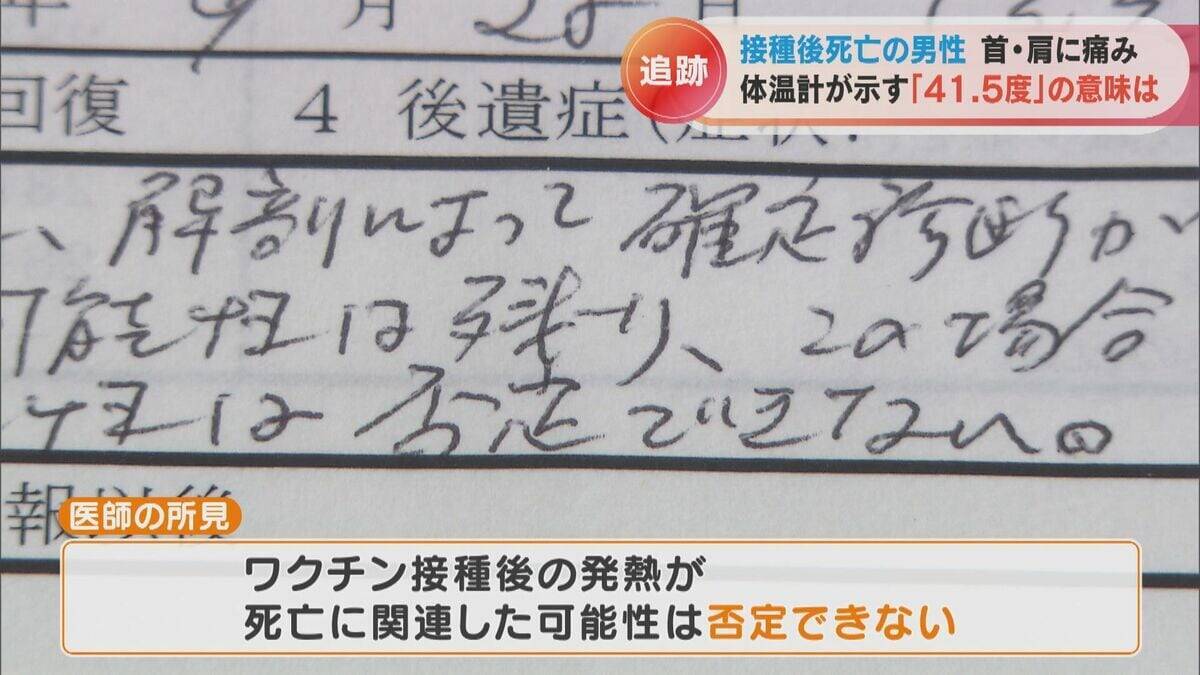 年 9 月 28 日
追跡
接種後死亡の男性 首・肩に痛み
体温計が示す「41.5度」の意味は
回復 4 後遺症(症状:
、解剖によって確定診断が
可能性は残り、この場合
性は否定できない。
報以後
医師の所見
ワクチン接種後の発熱が
死亡に関連した可能性は否定できない